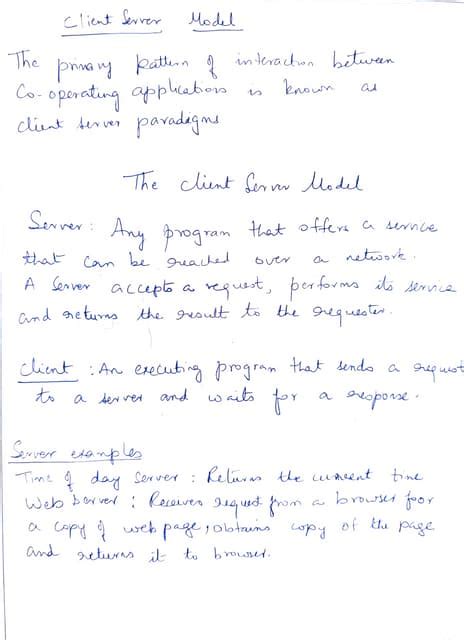 Client Server Model
The primary pattern of interaction between
Co-operating applications is known as
client server paradigms
The Client Server Model
Server: Any program that offers a service
that can be reached over a network.
A Server accepts a request, performs its service
and returns the result to the requester.
Client: An executing program that sends a request
to a server and waits for a response.
Server examples
Time of day Server: Returns the current time
Web Server: Receives request from a browser for
a copy of web page, obtains copy of the page
and returns it to browser.